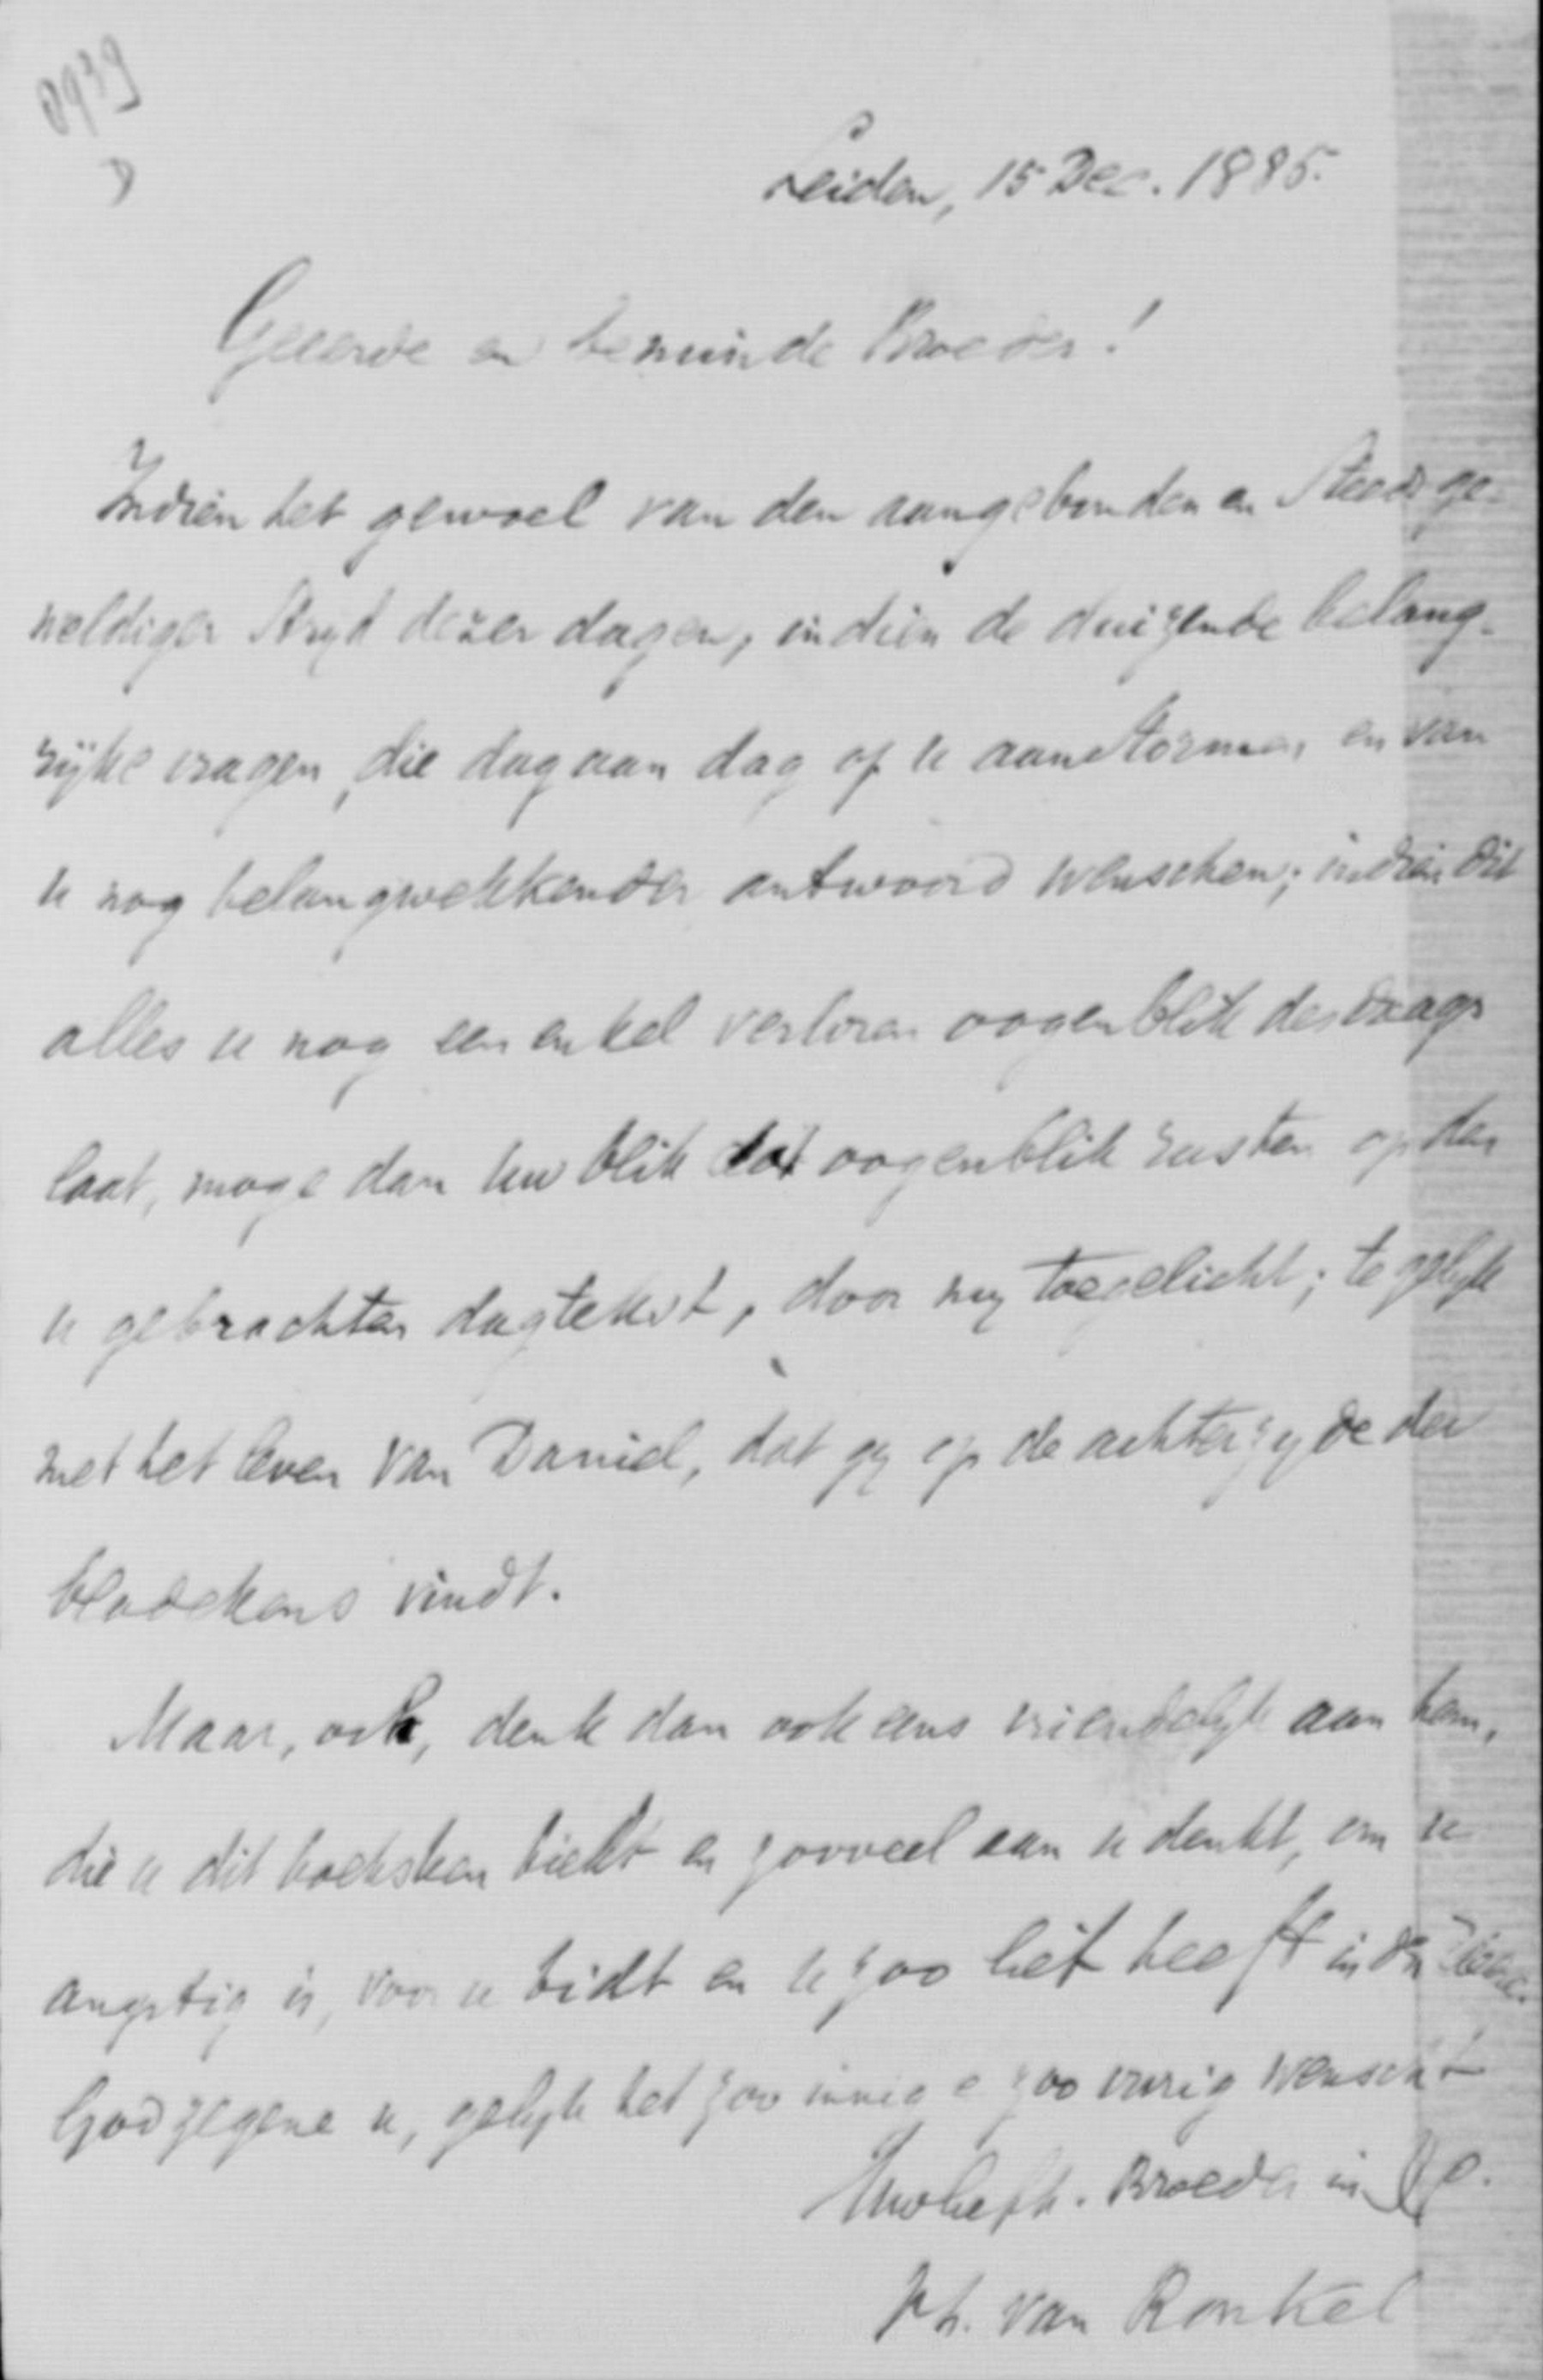 Leiden, 15 Dec. 1885.
Geëerde en beminde Broeder!
Indien het gewoel van den aangebonden en steeds ge-
weldiger stryd dezer dagen, indien de duizende belang-
rijke vragen, die dag aan dag op u aanstormen en van
u nog belangwekkender antwoord wenschen; indien dit
alles u nog een enkel verloren oogenblik des daags
laat, moge dan uw blik dat oogenblik rusten op den
u gebrachten dagtekst, door my toegelicht; te gelyk
met het leven van Daniel, dat gy op de achterzyde der
bladekens vindt.
Maar, och, denk dan ook eens vriendelyk aan hem,
die u dit boeksken biedt en zooveel aan u denkt, om u
angstig is, voor u bidt en u zoo lief heeft in den
God zegene u, gelyk het zoo innig e zoo vurig wenscht
Uw liefh. Broeder in
Ph. van Ronkel